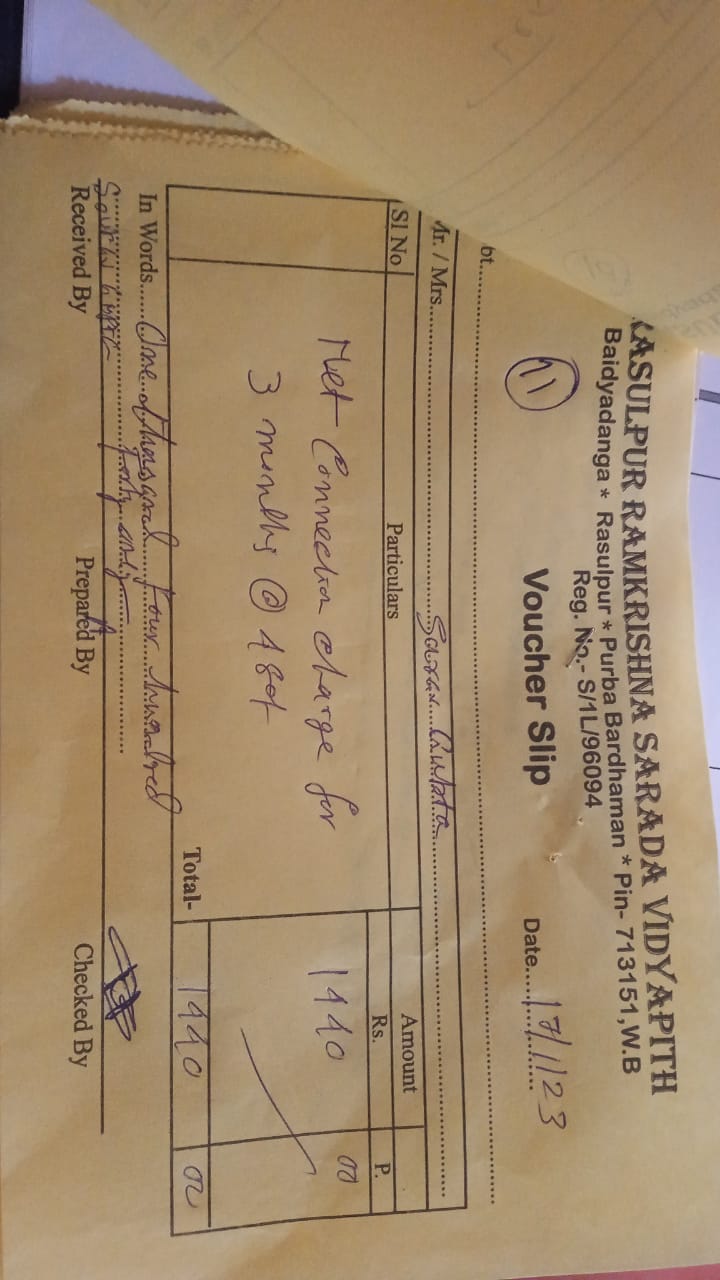 RASULPUR RAMKRISHNA SARADA VIDYAPITH
Baidyadanga * Rasulpur * Purba Bardhaman * Pin- 713151, W.B
Reg. No.- S/1L/96094
11 Voucher Slip Date....17/1/23
bt.
Mr. / Mrs.
Sl No. Particulars Amount
Rs. P.
Net Connection charge for 1440 00
3 months @ 480/-
Total- 1440 00
In Words......One thousand Four hundred
forty only
Received By Prepared By Checked By